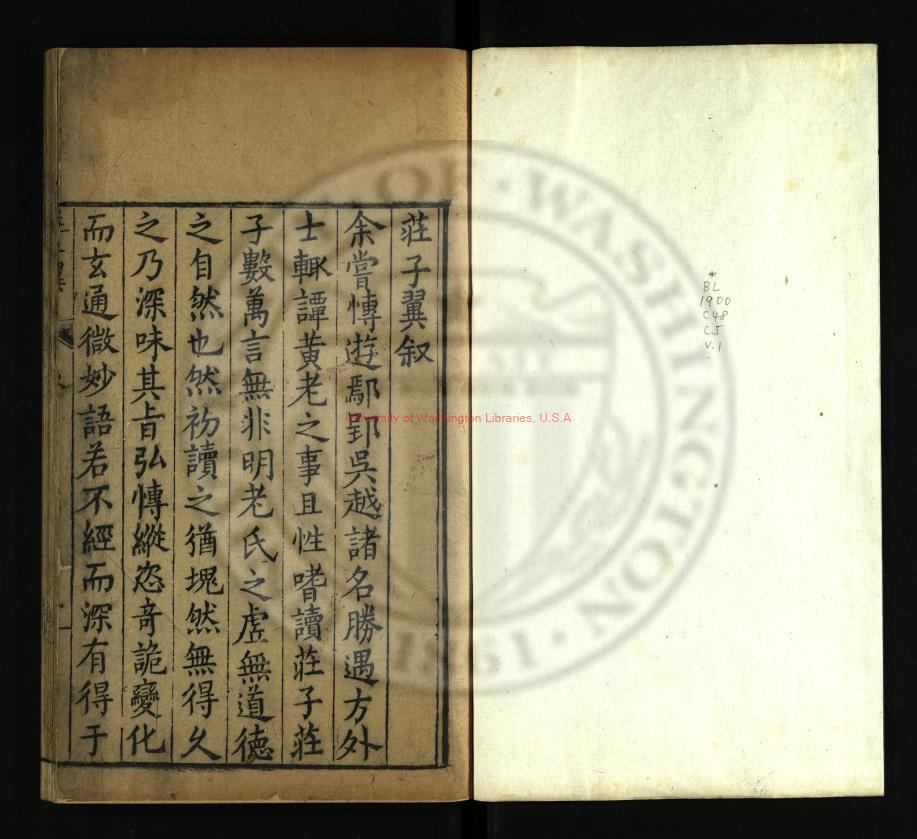 莊子翼叙
余嘗愽遊鄢郢吳越諸名勝遇方外
士輙譚黃老之事且性嗜讀莊子莊
子數萬言無非明老氏之虛無道德
之自然也然初讀之猶塊然無得久
之乃深味其旨弘愽縱恣奇詭變化
而玄通微妙語若不經而深有得于
*
BL
1900
C48
C5
V.1
University of Washington Libraries, U.S.A
WASHINGTON
1861